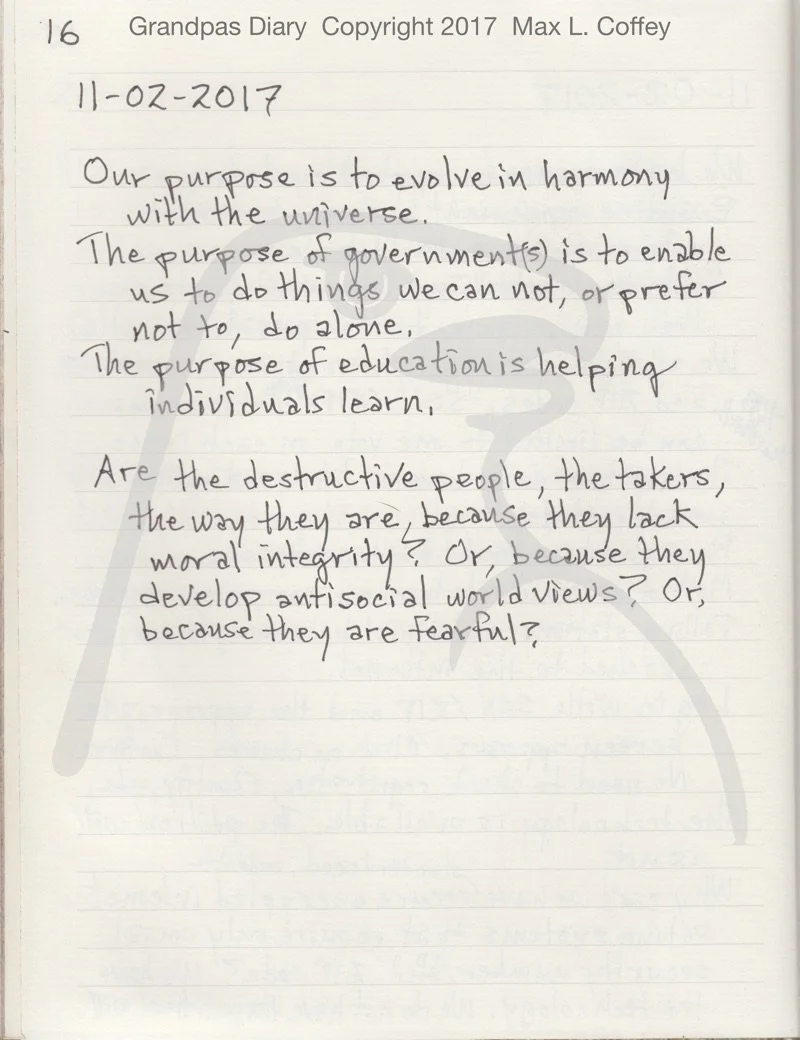 16 Grandpas Diary Copyright 2017 Max L. Coffey
11-02-2017
Our purpose is to evolve in harmony
with the universe.
The purpose of government(s) is to enable
us to do things we can not, or prefer
not to, do alone.
The purpose of education is helping
individuals learn.
Are the destructive people, the takers,
the way they are, because they lack
moral integrity? Or, because they
develop antisocial world views? Or,
because they are fearful?